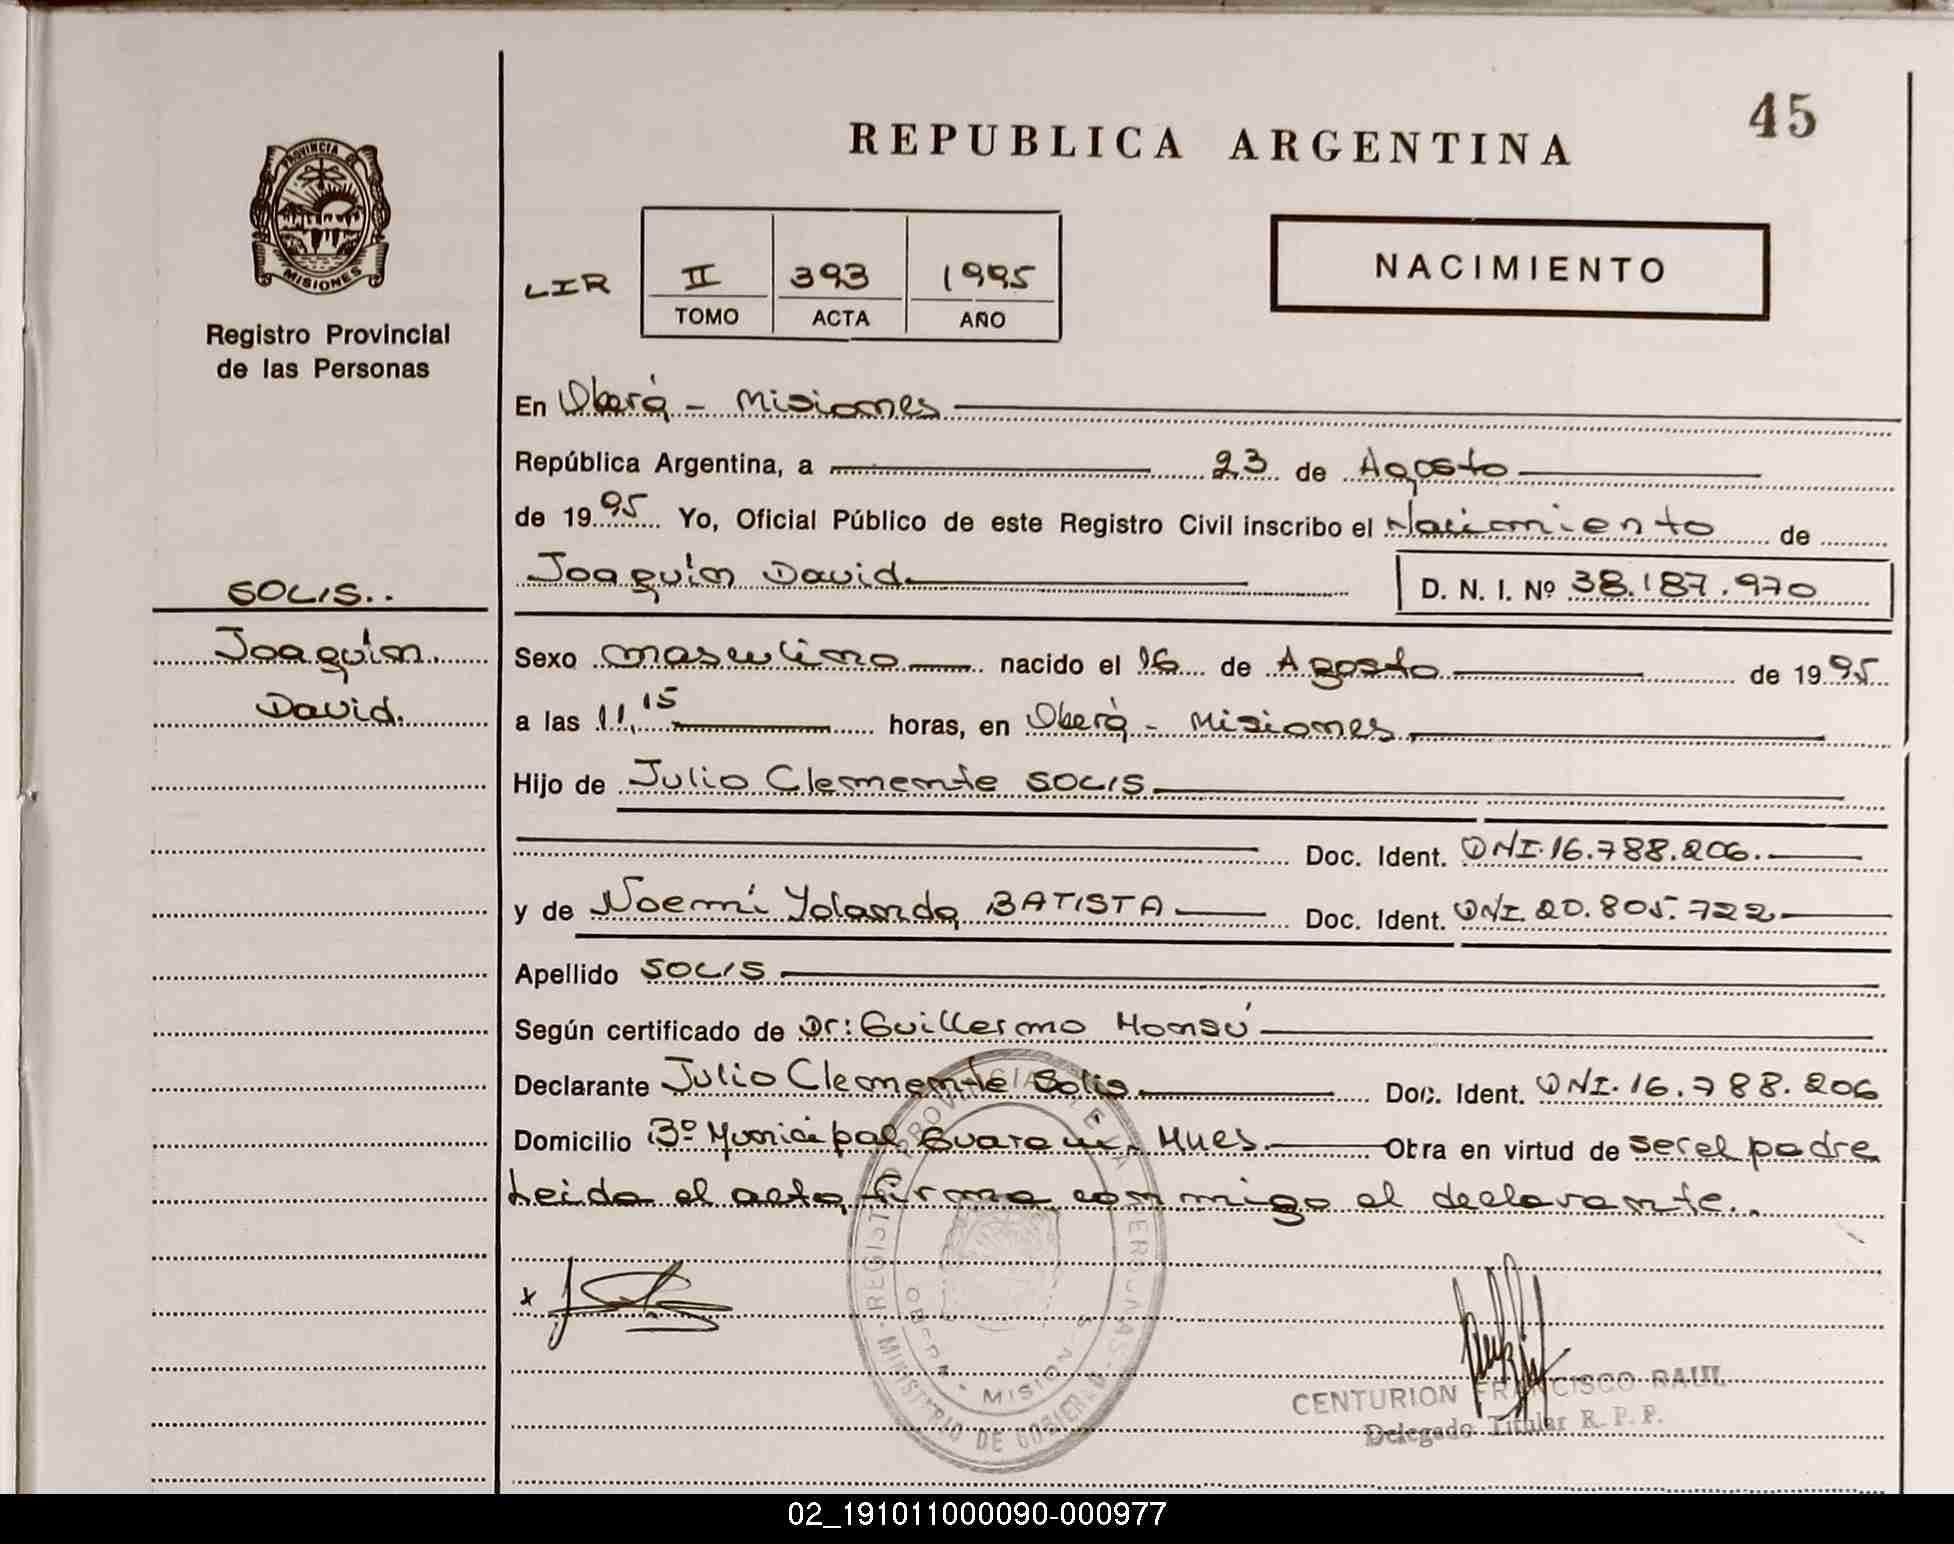 45
REPUBLICA ARGENTINA
PROVINCIA DE
MISIONES
Registro Provincial
de las Personas
NACIMIENTO
LIR II 393 1995
TOMO ACTA AÑO
En Oberá - Misiones
República Argentina, a 23 de Agosto
de 1995 Yo, Oficial Público de este Registro Civil inscribo el Nacimiento de
Joaquín David
D. N. I. Nº 38.187.970
SOLIS..
Joaquín
David.
Sexo masculino nacido el 16 de Agosto de 1995
a las 11,15 horas, en Oberá - Misiones,
Hijo de Julio Clemente SOLIS
Doc. Ident. DNI.16.788.206.
y de Noemí Yolanda BATISTA Doc. Ident. DNI.20.805.722
Apellido SOLIS
Según certificado de Dr: Guillermo
Declarante Julio Clemente Solis Doc. Ident. DNI.16.788.206
Domicilio Bº Municipal Guarani. Obra en virtud de ser el padre
Leida el acta, firma conmigo el declarante..
x
REGISTRO PROVINCIAL DE LAS PERSONAS
MINISTERIO DE GOBIERNO
MISIONES
CENTURION FRANCISCO RAUL
Delegado Titular R. P. P.
02_191011000090-000977